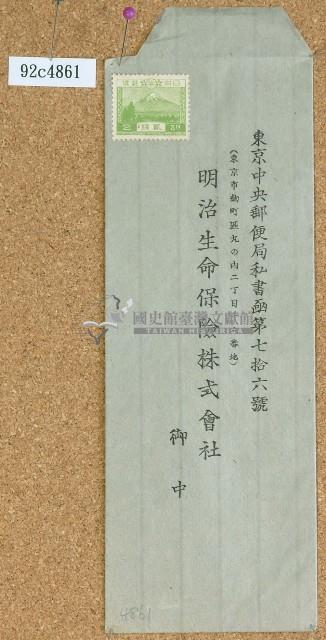 92c4861
東京中央郵便局私書函第七拾六號
(東京市麹町區丸の内二丁目 番地)
明治生命保險株式會社
御中
國史館臺灣文獻館
TAIWAN HISTORICA
4861